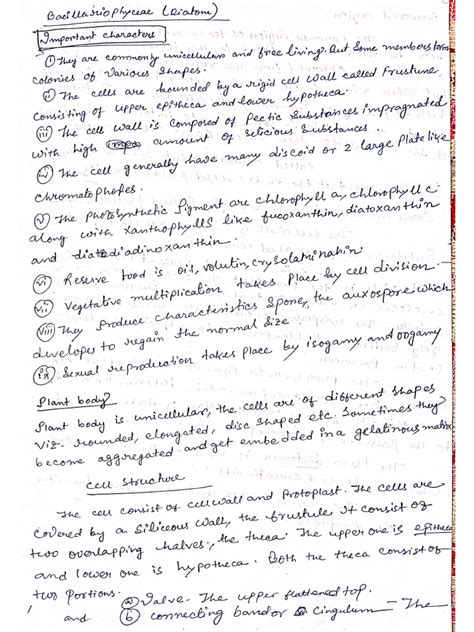 Bacillariophyceae (Diatom)
Important characters
(i) They are commonly unicellulars and free living. But some members form
colonies of various shapes.
(ii) The cells are bounded by a rigid cell wall called Frustune
consisting of upper epitheca and lower hypotheca.
(iii) The cell wall is composed of Pectic Substances impragnated
with high amount of selicious substances.
(iv) The cell generally have many discoid or 2 large Plate like
chromatophores.
(v) The Photosynthetic Pigment are chlorophyll a, chlorophyll c
along with xanthophylls like fucoxanthin, diatoxanthin
and diadinoxanthin.
(vi) Reserve food is oils, volutin, crysolaminahin.
(vii) Vegetative multiplication takes Place by cell division.
(viii) They Produce characteristics Spore, the auxospore which
developes to regain the normal size
(ix) Sexual reproduction takes place by isogamy and oogamy
Plant body?
Plant body is unicellular, the cells are of different shapes
viz. rounded, elongated, disc shaped etc. Sometimes they
become aggregated and get embedded in a gelatinous matrix
Cell Structure
The cell consist of cell wall and Protoplast. The cells are
covered by a Siliceous wall, the frustule. It consist of
two overlapping halves, the theca. The upper one is epitheca
and lower one is hypotheca. Both the theca consist of
two Portions.
(a) Valve - The upper flattened top.
and (b) connecting band or Cingulum - The